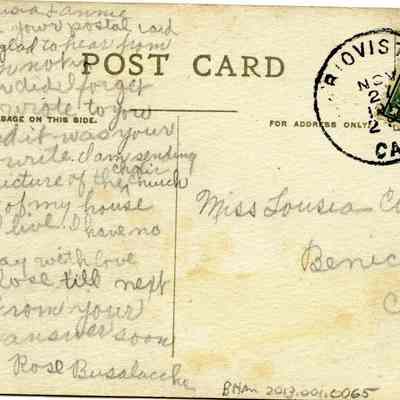 Fannie
your postal card
glad to hear from
not
did I forget
wrote to you
it was your
write. I am sending
picture of the choir church
of my house
I live. I have no
with love
close till next
from your
answer soon
Rose Busalacchi
POST CARD
SAGE ON THIS SIDE.
FOR ADDRESS ONLY
RIOVIST
NOV
2
CA
Miss Lousia Co
Benic
C
BHAn 2013.001.0065